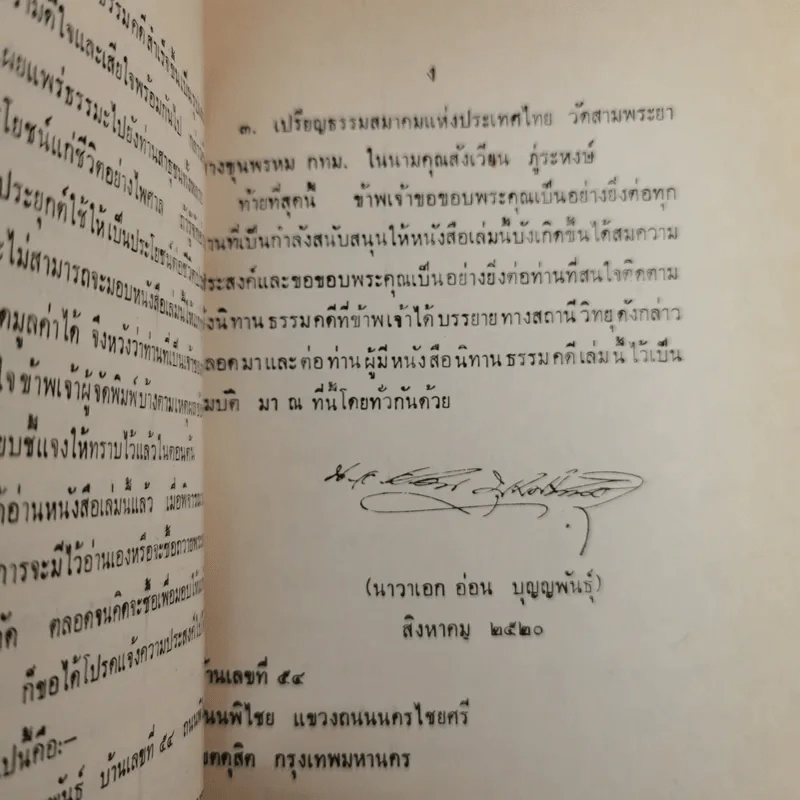 ธรรมคดีสำเร็จขึ้นเป็น
ความดีใจและเสียใจพร้อมกันไป
เผยแพร่ธรรมะไปยังท่านสาธุชน
โยชน์แก่ชีวิตอย่างไพศาล
ประยุกต์ใช้ให้เป็นประโยชน์ต่อชีวิต
ะไม่สามารถจะมอบหนังสือเล่มนี้ให้
ดมูลค่าได้ จึงหวังว่าท่านที่เป็นเจ้า
ใจ ข้าพเจ้าผู้จัดพิมพ์บ้างตามเหตุ
ียบชี้แจงให้ทราบไว้แล้วในตอนต้น
ด้อ่านหนังสือเล่มนี้แล้ว เมื่อพิจารณา
การจะมีไว้อ่านเองหรือจะซื้อถวายพระ
ตลอดจนคิดจะซื้อเพื่อมอบให้
ก็ขอได้โปรดแจ้งความประสงค์ไป
ปนี้คือ:–
พันธุ์ บ้านเลขที่ ๕๔ ถนน
ง
๓. เปรียญธรรมสมาคมแห่งประเทศไทย วัดสามพระยา
างขุนพรหม กทม. ในนามคุณสังเวียน ภู่ระหงษ์
ท้ายที่สุดนี้ ข้าพเจ้าขอขอบพระคุณเป็นอย่างยิ่งต่อทุก
านที่เป็นกำลังสนับสนุนให้หนังสือเล่มนี้บังเกิดขึ้นได้สมความ
ระสงค์และขอขอบพระคุณเป็นอย่างยิ่งต่อท่านที่สนใจติดตาม
ังนิทานธรรมคดีที่ข้าพเจ้าได้บรรยายทางสถานีวิทยุดังกล่าว
ลอดมาและต่อท่านผู้มีหนังสือนิทานธรรมคดีเล่มนี้ไว้เป็น
มบัติ มา ณ ที่นี้โดยทั่วกันด้วย
(นาวาเอก อ่อน บุญญพันธุ์)
สิงหาคม ๒๕๒๐
บ้านเลขที่ ๕๔
นนพิไชย แขวงถนนนครไชยศรี
ขตดุสิต กรุงเทพมหานคร